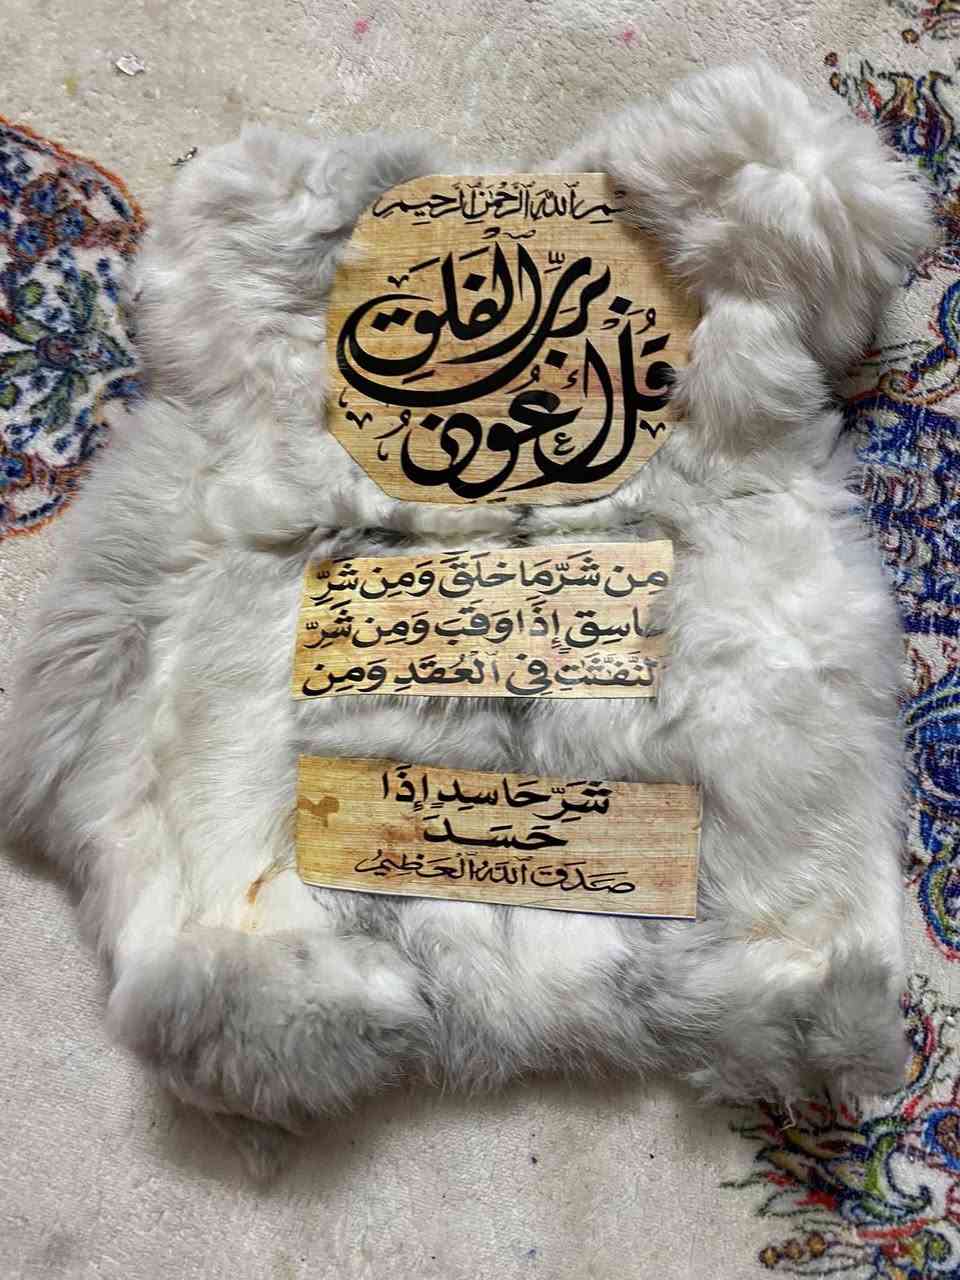 بِسْمِ ٱللَّهِ ٱلرَّحْمَٰنِ ٱلرَّحِيمِ
قُلْ أَعُوذُ
بِرَبِّ ٱلْفَلَقِ
مِن شَرِّ مَا خَلَقَ وَمِن شَرِّ
غَاسِقٍ إِذَا وَقَبَ وَمِن شَرِّ
ٱلنَّفَّٰثَٰتِ فِى ٱلْعُقَدِ وَمِن
شَرِّ حَاسِدٍ إِذَا
حَسَدَ
صَدَقَ ٱللَّهُ ٱلْعَظِيمُ